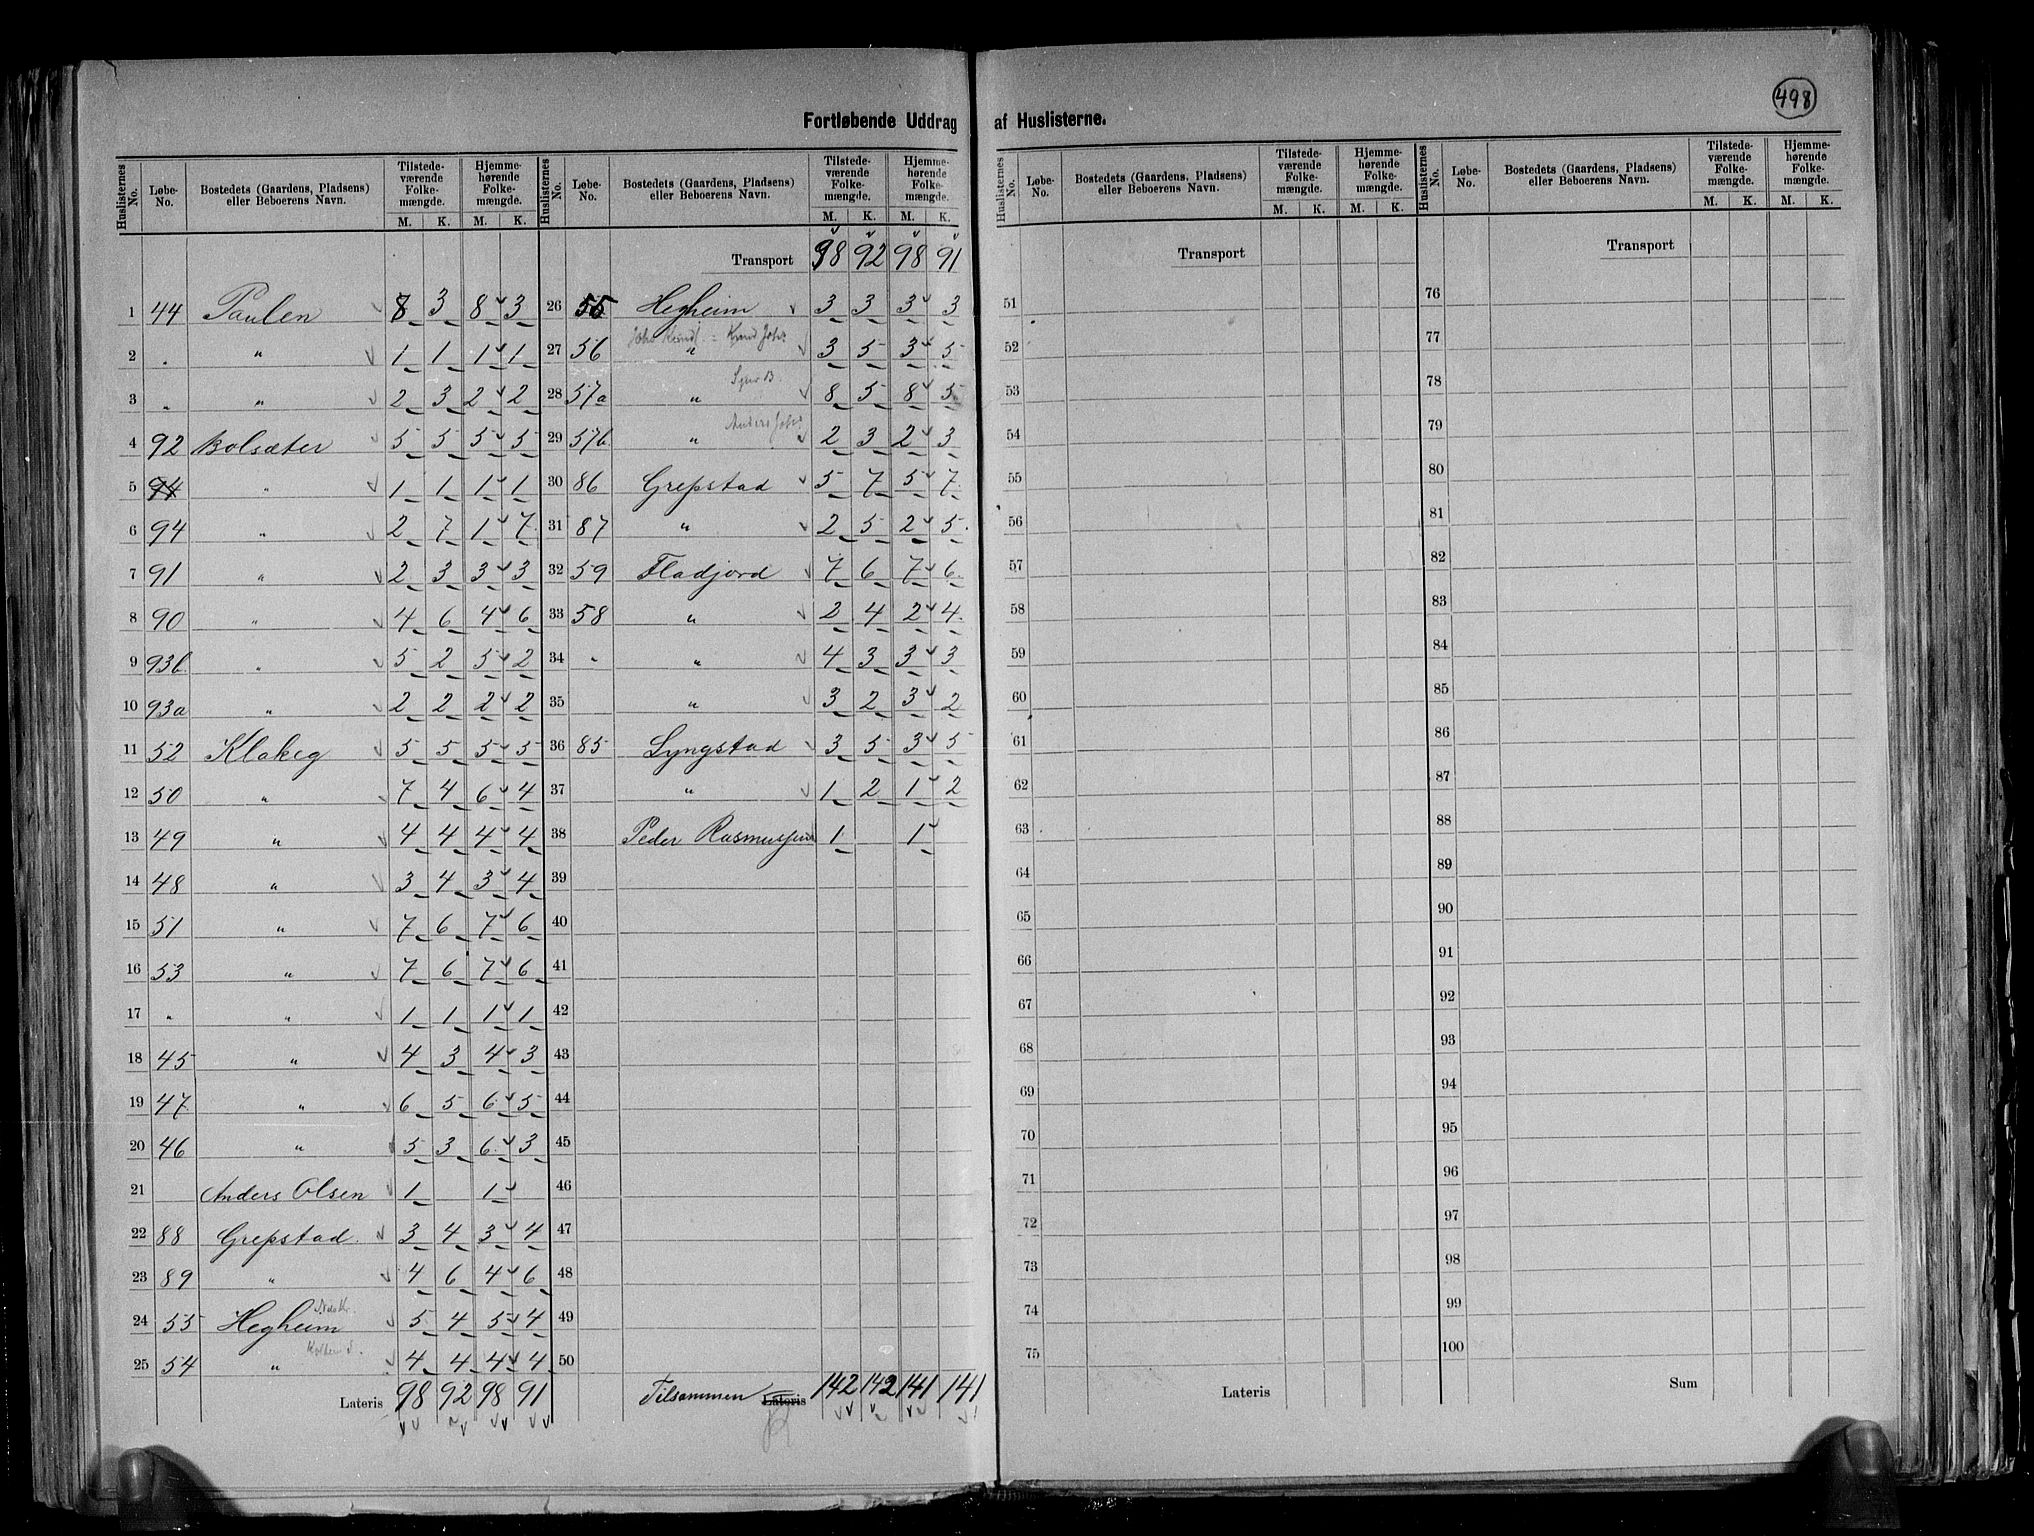 498
Fortløbende Uddrag af Huslisterne.
Huslisternes No. Løbe-No. Bostedets (Gaardens, Pladsens) eller Beboerens Navn. Tilstedeværende Folkemængde. M. K. Hjemmehørende Folkemængde. M. K.
1 44 Paulen 8 3 8 3
2 " " 1 1 1 1
3 " " 2 3 2 2
4 92 Bolsæter 5 5 5 5
5 94 " 1 1 1 1
6 94 " 2 7 1 7
7 91 " 2 3 3 3
8 90 " 4 6 4 6
9 93b. " 5 2 5 2
10 93a " 2 2 2 2
11 52 Klakeg 5 5 5 5
12 50 " 7 4 6 4
13 49 " 4 4 4 4
14 48 " 3 4 3 4
15 51 " 7 6 7 6
16 53 " 7 6 7 6
17 " " 1 1 1 1
18 45 " 4 3 4 3
19 47 " 6 5 6 5
20 46 " 5 3 6 3
21 Anders Olsen 1 1
22 88 Grepstad 3 4 3 4
23 89 " 4 6 4 6
24 55 Hegheim 5 4 5 4
25 54 " 4 4 4 4
Lateris 98 92 98 91
Huslisternes No. Løbe-No. Bostedets (Gaardens, Pladsens) eller Beboerens Navn. Tilstedeværende Folkemængde. M. K. Hjemmehørende Folkemængde. M. K.
Transport 98 92 98 91
26 55 Hegheim 3 3 3 3
27 56 " 3 5 3 5
28 57a " 8 5 8 5
Anders Johs
29 57b. " 2 3 2 3
30 86 Grepstad 5 7 5 7
31 87 " 2 5 2 5
32 59 Fladjord 7 6 7 6
33 58 " 2 4 2 4
34 " " 4 3 3 3
35 " 3 2 3 2
36 85 Lyngstad 3 5 3 5
37 " 1 2 1 2
38 Peder Rasmussen 1 1
39
40
41
42
43
44
45
46
47
48
49
50
Tilsammen Lateris 142 142 141 141
Huslisternes No. Løbe-No. Bostedets (Gaardens, Pladsens) eller Beboerens Navn. Tilstedeværende Folkemængde. M. K. Hjemmehørende Folkemængde. M. K.
Transport
51
52
53
54
55
56
57
58
59
60
61
62
63
64
65
66
67
68
69
70
71
72
73
74
75
Lateris
Huslisternes No. Løbe-No. Bostedets (Gaardens, Pladsens) eller Beboerens Navn. Tilstedeværende Folkemængde. M. K. Hjemmehørende Folkemængde. M. K.
Transport
76
77
78
79
80
81
82
83
84
85
86
87
88
89
90
91
92
93
94
95
96
97
98
99
100
Sum